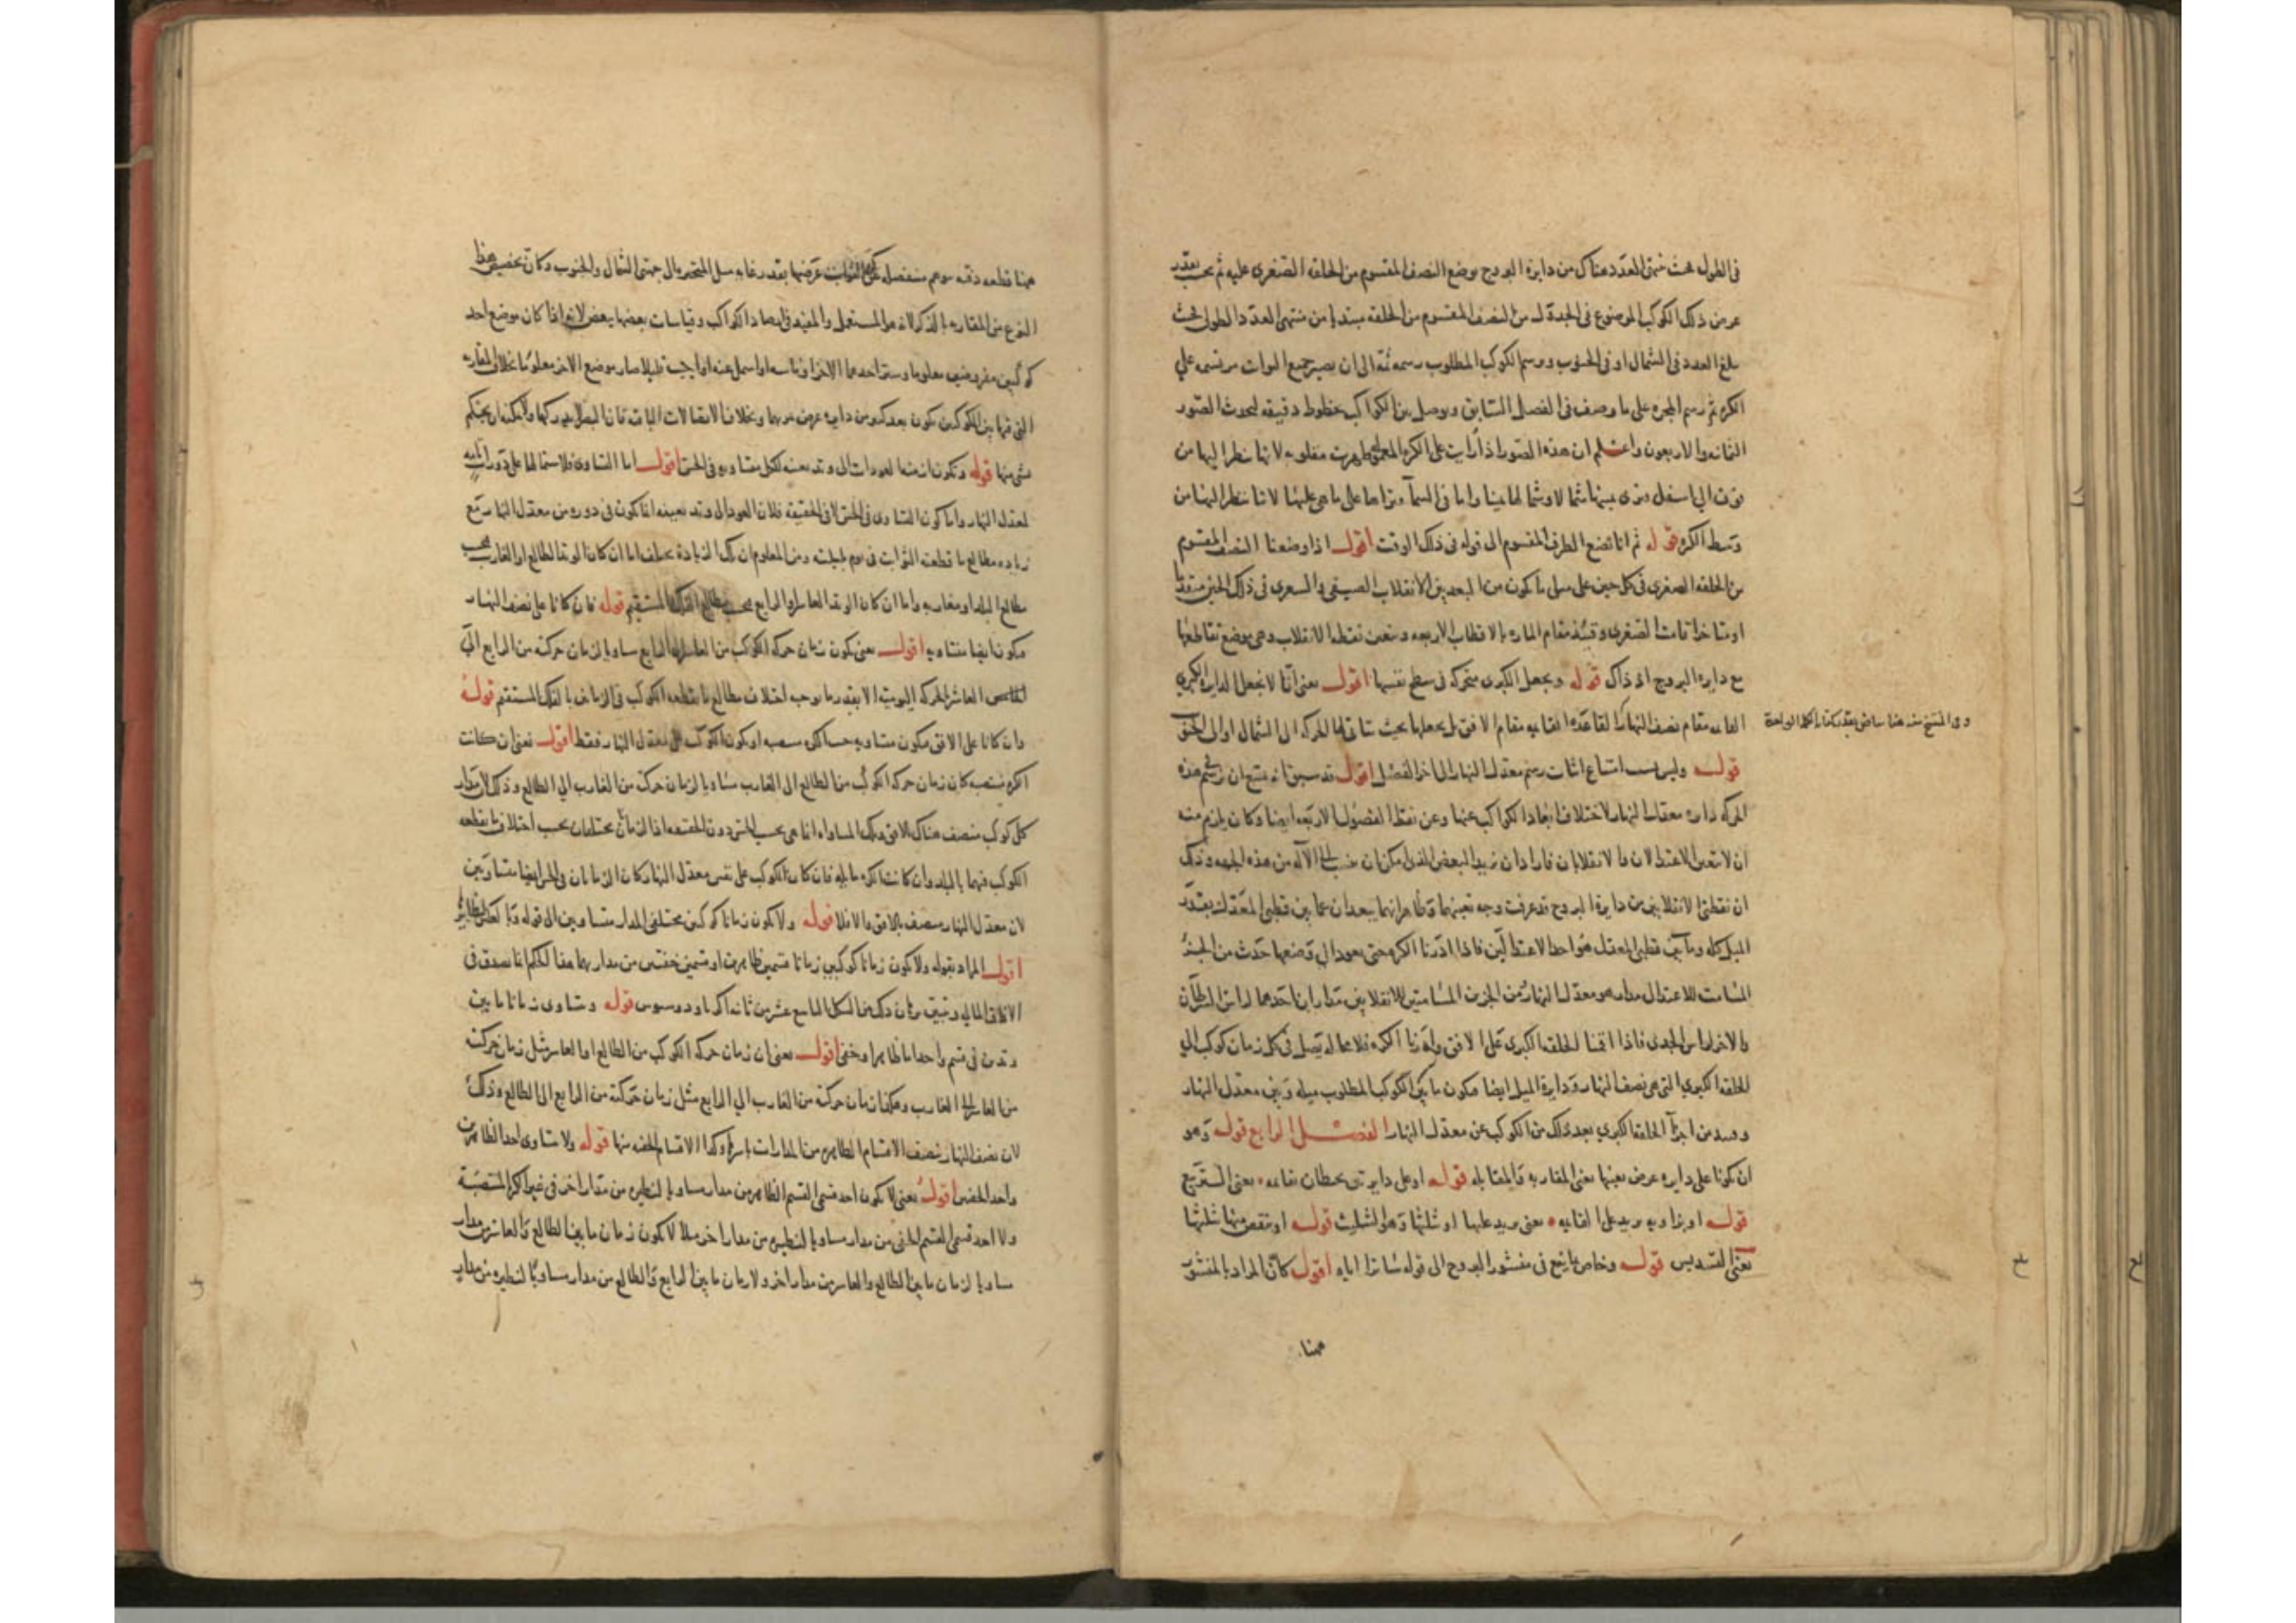 في الطول بحيث منتهى العدد هناك من دايرة البروج بوضع النصف المقسوم من الحلقة الصغرى عليه ثم بحسب بقدر
عرض ذلك الكوكب الموضوع في الجدول من النصف المقسوم من الحلقة مبتديا من منتهى العدد الطولي بحيث
بلغ العدد في الشمال او في الجنوب ورسم الكوكب المطلوب رسمه ثمة الى ان يصير جميع الثوابت مرتسمة على
الكرة ثم رسم المجرة على ما وصف في الفصل السابق ويوصل بين الكواكب بخطوط دقيقة لتحدث الصور
الثمانية والاربعون واعلم ان هذه الصور اذا رايت على الكرة ظهرت مقلوبة لانها نظرا اليها من
فوق الى اسفل ونرى يمينها شمالا وشمالها يمينا واما في السمآ ونراها على ما هي عليها لانا ننظر اليها من
وسط الكرة قوله ثم انا نضع الطرف المقسوم الى قوله في ذلك الوقت اقول اذا وضعنا النصف المقسوم
من الحلقة الصغرى في كل حين على ميل ما يكون من البعد بين الانقلاب الصيفي والشعرى في ذلك الحين متقدما
او متاخرا قامت الصغرى وقتئذ مقام المارة بالاقطاب الاربعة وتعين نقطة الانقلاب وهي موضع تقاطعها
مع دايرة البروج اذ ذاك قوله ونجعل الكبرى متحركة في سطح نفسها اقول يعني انا لا نجعل الدايرة الكبرى
القايمة مقام نصف النهار القاعدة القايمة مقام الافق بل نجعلها بحيث تتاتى لها الحركة الى الشمال او الى الجنوب
قوله وليس امتناع اثبات رسم معدل النهار الى اخر الفصل اقول قد سبق انه يمتنع ان نرسم هذه
الحركة دايرة معدل النهار لاختلاف ابعاد الكواكب عنها وعن نقط الفصول الاربعة ايضا وكان يلزم منه
ان لا تتعين الاعتدالان والانقلابان فاراد ان
ان نقطتي الانقلابين من دايرة البروج قد عرفت وجه تعينهما وظاهر انهما يبعدان عما بين قطبي المعدل بقدر
الميل كله وما بين قطبي المعدل هو احد الاعتدالين فاذا ادرنا الكرة حتى يعود الى وضعها حدث من الجزء
المسامت للاعتدال مدار هو معدل النهار ومن الجزئين المسامتين للانقلابين مداران احدهما لراس السرطان
والاخر لراس الجدي فاذا اقمنا الحلقة الكبرى على الافق وادرنا الكرة فلا محالة يصل في كل زمان كوكب الى
الحلقة الكبرى التي هي نصف النهار ودايرة الميل ايضا فيكون ما بين الكوكب المطلوب ميله وبين معدل النهار
من اجزآ الحلقة الكبرى بعد ذلك من الكوكب عن معدل النهار الفصل الرابع قوله وهو
ان يكونا على دايرة عرض بعينها يعني المقارنة والمقابلة قوله او على دايرتين يحيطان بقايمة يعني التربيع
قوله او بزاوية يزيد على القايمة يعني يزيد عليها او ثلثها وهو التثليث قوله او تنقص منها ثلثها
يعني التسديس قوله وخاص ما يقع في منشور البروج الى قوله ساترا اياه اقول كان المراد بالمنشور
ههنا
ههنا قطعة دقة عرضها بقدر غاية ميل المتحيرة الى جهتي الشمال والجنوب وكان تخصيص هذا
النوع من المقارنة بالذكر لانه هو المستعمل والمفيد في ارصاد الكواكب وقياسات بعضها ببعض لانه اذا كان موضع احد
كوكبين مفروضين معلوما وستر احدهما الاخر صار موضع الاخر معلوما بخلاف المقارنة
التي فيما بين الكوكبين يكون بعد كثير من دايرة عرض وبخلاف الاتصالات الباقية فان البصر لا يدركها ولا يمكنه ان يحكم
شي منها قوله وتكون ازمنة العودات الى وتد بعينه لكل متساوية في الحس اقول اما التساوي
لمعدل النهار واما كون التساوي في الحس لا في الحقيقة فلان العود الى وتد بعينه انما يكون في دورة من معدل النهار مع
زيادة مطالع ما قطعته الثوابت في يوم بليلته ومن المعلوم ان تلك الزيادة تختلف اما ان كان الوتد الطالع او الغارب بحسب
مطالع البلد او مغاربه واما ان كان الوتد العاشر او الرابع بحسب مطالع الفلك المستقيم قوله فان كانا على نصف النهار
فيكون ايضا متساوية اقول يعني يكون زمان حركة الكوكب من العاشر الى الرابع مساويا لزمان حركته من الرابع الى
العاشر الحركة اليومية الا بقدر ما يوجب اختلاف مطالع ما يقطعه الكوكب في الزمانين بالفلك المستقيم قوله
وان كانا على الافق فيكون متساوية او يكون الكوكب على معدل النهار فقط اقول يعني ان كانت
الكرة منتصبة كان زمان حركة الكوكب من الطالع الى الغارب مساويا لزمان حركته من الغارب الى الطالع وذلك لان مدار
كل كوكب ينصف هناك الافق وتلك المساواة انما هي بحسب الحس دون الحقيقة اذ الزمانان يختلفان بحسب اختلاف ما يقطعه
الكوكب فيهما بالبلد وان كانت الكرة مايلة فان كان الكوكب على نفس معدل النهار كان الزمانان في الحس ايضا متساويين
لان معدل النهار ينصف بالافق والا فلا قوله ولا يكون زمانا كوكبين مختلفي المدار متساويين الى قوله وبالعكس
اقول المراد بقوله ولا يكون زمانا كوكبين زمانا قسمين ظاهرين او قسمين خفيين من مداريهما هذا الحكم انما يصدق في
الافاق المايلة وتبين برهان ذلك من الشكل التاسع عشر من ثانية اكر ثاوذوسيوس قوله وتساوى زمانا ما بين
وتدين في قسم واحد اما ظاهرا وخفي اقول يعني ان زمان حركة الكوكب من الطالع الى العاشر مثل زمان حركته
من العاشر الى الغارب وهكذا زمان حركته من الغارب الى الرابع مثل زمان حركته من الرابع الى الطالع وذلك
لان نصف النهار ينصف الاقسام الظاهرة من المدارات باسرها وكذا الاقسام الخفية منها قوله ولا يتساوى احد الظاهرين
واحد الخفيين اقول يعني لا يكون احد قسمي القسم الظاهر من مدار مساويا لنظيره من مدار اخر في غير الكرة المنتصبة
ولا احد قسمي القسم الخفي من مدار مساويا لنظيره من مدار اخر مثلا لا يكون زمان ما بين الطالع والعاشر من مدار
مساويا لزمان ما بين الطالع والعاشر من مدار اخر ولا زمان ما بين الرابع والطالع من مدار مساويا لنظيره من مدار